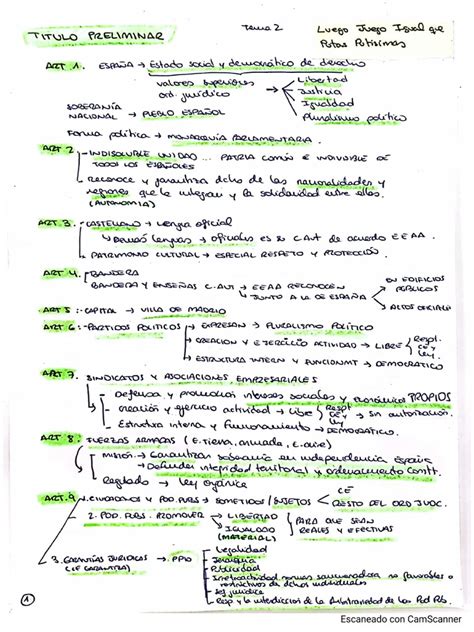 TITULO PRELIMINAR
Tema 2
Luego Juego Igual que
Putas Putísimas
ART 1. ESPAÑA → Estado social y democrático de derecho
valores superiores
ord. jurídico
Libertad
Justicia
Igualdad
Pluralismo político
SOBERANÍA
NACIONAL → PUEBLO ESPAÑOL
Forma política → MONARQUÍA PARLAMENTARIA.
ART 2
- INDISOLUBLE UNIDAD ... PATRIA COMÚN E INDIVISIBLE DE
TODOS LOS ESPAÑOLES
- Reconoce y garantiza dcho de las nacionalidades y
regiones que la integran y la solidaridad entre ellas.
(AUTONOMIA)
ART. 3.
- CASTELLANO → lengua oficial
↳ Demás lenguas → oficiales en C.Aut de acuerdo EEAA.
- PATRIMONIO CULTURAL → ESPECIAL RESPETO Y PROTECCIÓN.
ART 4.
BANDERA
BANDERA Y ENSEÑAS C.AUT → EEAA RECONOCEN
JUNTO A LA DE ESPAÑA
EN EDIFICIOS
PÚBLICOS
ACTOS OFICIALES
ART 5 :- CAPITAL → VILLA DE MADRID
ART 6 :- PARTIDOS POLITICOS → EXPRESAN → PLURALISMO POLÍTICO
→ CREACION Y EJERCICIO ACTIVIDAD → LIBRE
Respt.
CE
y
ley
→ ESTRUCTURA INTERN Y FUNCIONMT → DEMOCRATICO
ART 7. SINDICATOS Y ASOCIACIONES EMPRESARIALES
- Defensa y promocion intereses sociales y económicos PROPIOS
- creación y ejercicio actividad → Libre
Respt
CE y
ley
→ Sin autorización.
- Estructura interna y Funcionamiento → DEMOCRÁTICO.
ART. 8. FUERZAS ARMADAS (E.tierra, armada, E.aire)
MISIÓN → Garantizar soberanía en independencia España
→ Defender integridad territorial y ordenamiento Constt.
Regulado → ley orgánica
ART. 9
1. CIUDADANOS Y POD. PUBS → SOMETIDOS / SUJETOS
CE
RESTO DEL ORD JUDC.
2. POD. PUBS. PROMOVER → LIBERTAD
IGUALDAD
(MATERIAL)
PARA QUE SEAN
REALES Y EFECTIVAS
3. GARANTÍAS JURIDICAS → PPIO
(CE GARANTIZA)
Legalidad
Jerarquía
Publicidad
Irretroactividad normas sancionadoras no favorables o
restrictivas de dchos individuales
Seg jurídica
Resp y la interdicción de la Arbitrariedad de los Pod Pcb.
1
Escaneado con CamScanner